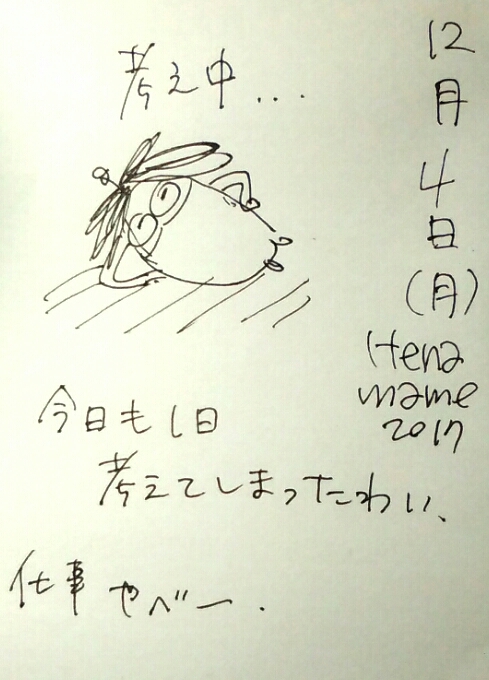 12月4日(月)
Hena
mame
2017
考え中...
今日も1日
考えてしまったわい、
仕事やべー.